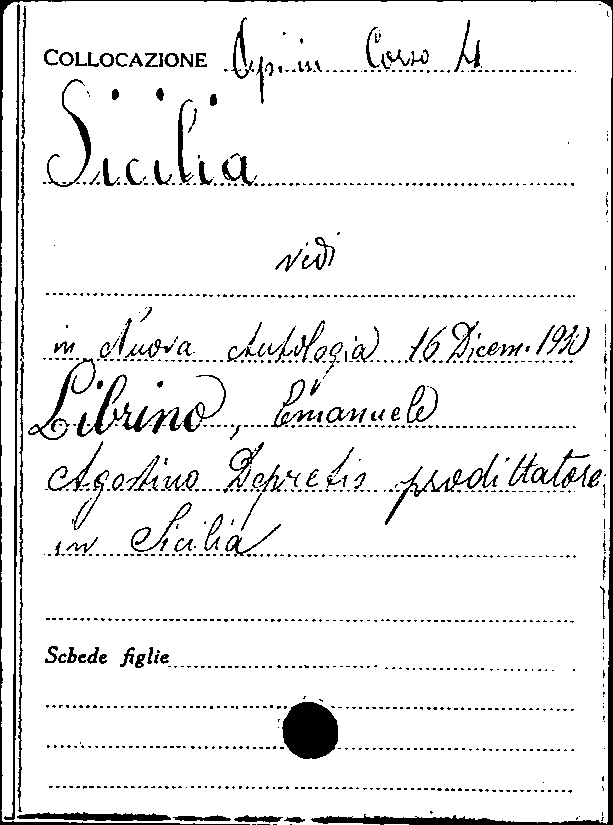 COLLOCAZIONE Opi in Corso 4
Sicilia
vedi
in Nuova Antologia 16 Dicem. 1930
Librino, Emanuele
Agostino Depretis prodittatore
in Sicilia
Schede figlie